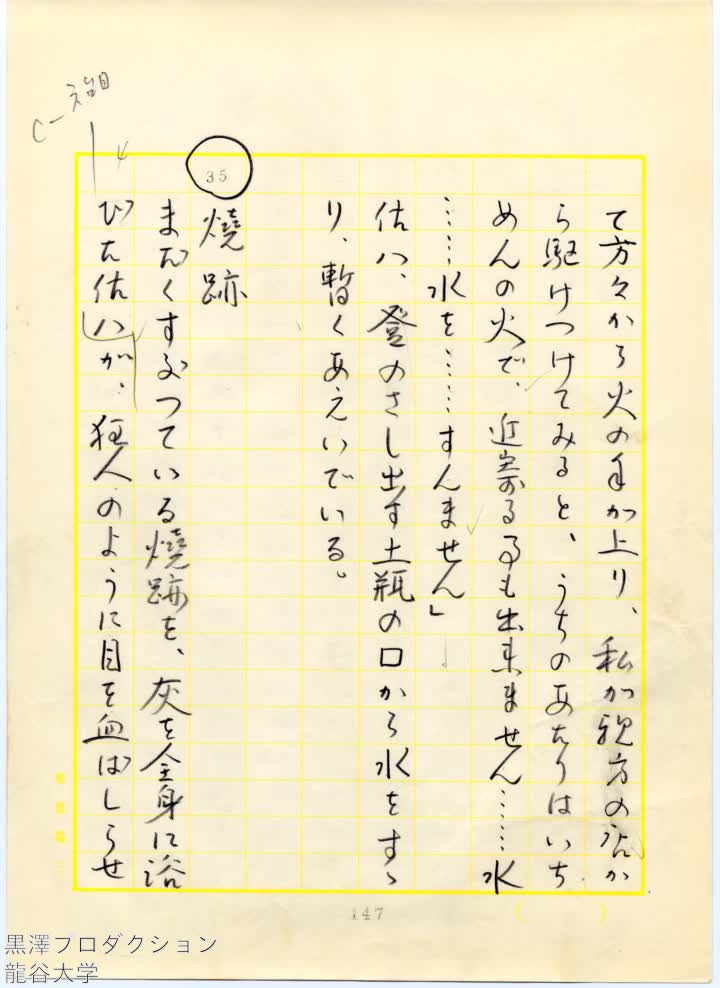 て方々から火の手が上り、私が親方の店か
ら駆けつけてみると、うちのあたりはいち
めんの火で、近寄る事も出来ません……水
……水を……すんません」
佐八、登のさし出す土瓶の口から水をすゝ
り、暫くあえいでいる。
35
燒跡
まだくすぶつている燒跡を、灰を全身に浴
びた佐八が、狂人のように目を血ばしらせ
147
黒澤プロダクション
龍谷大学